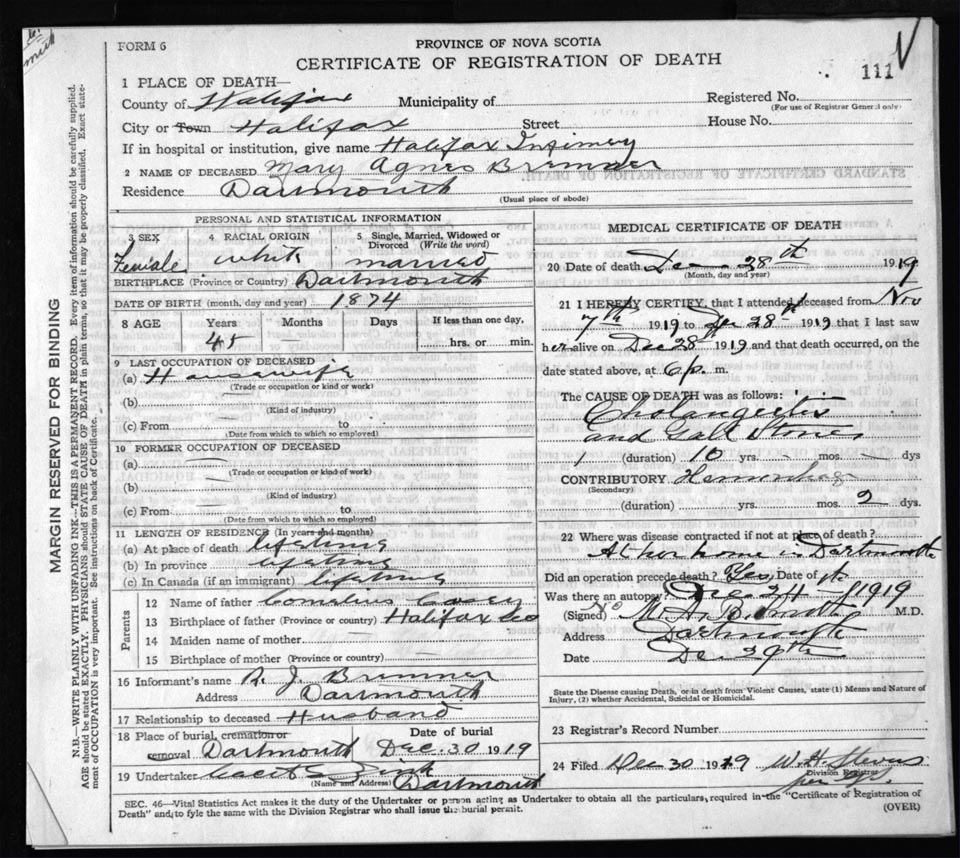 FORM 6
PROVINCE OF NOVA SCOTIA
CERTIFICATE OF REGISTRATION OF DEATH
111
1 PLACE OF DEATH—
County of Halifax Municipality of Registered No.
(For use of Registrar General only)
City or Town Halifax Street House No.
If in hospital or institution, give name Halifax Infimery
2 NAME OF DECEASED Mary Agnes Bremner
Residence Dartmouth
(Usual place of abode)
PERSONAL AND STATISTICAL INFORMATION
3 SEX 4 RACIAL ORIGIN 5 Single, Married, Widowed or Divorced (Write the word)
Female White married
BIRTHPLACE (Province or Country) Dartmouth
DATE OF BIRTH (month, day and year) 1874
8 AGE Years Months Days If less than one day,
45 hrs. or min.
9 LAST OCCUPATION OF DECEASED
(a) Housewife
(Trade or occupation or kind or work)
(b)
(Kind of industry)
(c) From to
(Date from which to which so employed)
10 FORMER OCCUPATION OF DECEASED
(a) —
(Trade or occupation or kind of work)
(b) —
(Kind of industry)
(c) From to
(Date from which to which so employed)
11 LENGTH OF RESIDENCE (In years and months)
(a) At place of death lifetime
(b) In province lifetime
(c) In Canada (if an immigrant) lifetime
Parents
12 Name of father Cornelius Casey
13 Birthplace of father (Province or country) Halifax Co
14 Maiden name of mother —
15 Birthplace of mother (Province or country) —
16 Informant's name J Bremner
Address Dartmouth
17 Relationship to deceased Husband
18 Place of burial, cremation or removal Dartmouth Date of burial Dec. 30 1919
19 Undertaker Dartmouth
(Name and Address)
MEDICAL CERTIFICATE OF DEATH
20 Date of death Dec 28th 1919
(Month, day and year)
21 I HEREBY CERTIFY, that I attended deceased from Nov
7th 1919 to Dec 28th 1919 that I last saw
her alive on Dec 28 1919 and that death occurred, on the
date stated above, at 6 p. m.
The CAUSE OF DEATH was as follows:
Cholangeitis
and Gall Stones
(duration) 10 yrs. — mos. — dys
CONTRIBUTORY Hemorrhage
(Secondary)
(duration) yrs. mos. 2 dys.
22 Where was disease contracted if not at place of death?
At her home in Dartmouth
Did an operation precede death? Yes Date of it
Was there an autopsy? Dec 24 1919
No
(Signed) M.D.
Address Dartmouth
Date Dec 29th
State the Disease causing Death, or in death from Violent Causes, state (1) Means and Nature of
Injury, (2) whether Accidental, Suicidal or Homicidal.
23 Registrar's Record Number
24 Filed Dec 30 1919 W. H. Stevens
Division Registrar
SEC. 46—Vital Statistics Act makes it duty of the Undertaker or person acting as Undertaker to obtain all the particulars, required in the "Certificate of Registration of
Death" and to fyle the same with the Division Registrar who shall issue the burial permit. (OVER)
MARGIN RESERVED FOR BINDING
N.B.—WRITE PLAINLY WITH UNFADING INK—THIS IS A PERMANENT RECORD. Every item of information should be carefully supplied.
AGE should be stated EXACTLY. PHYSICIANS should STATE CAUSE OF DEATH in plain terms, so that it may be properly classified. Exact state-
ment of OCCUPATION is very important. See instructions on back of Certificate.